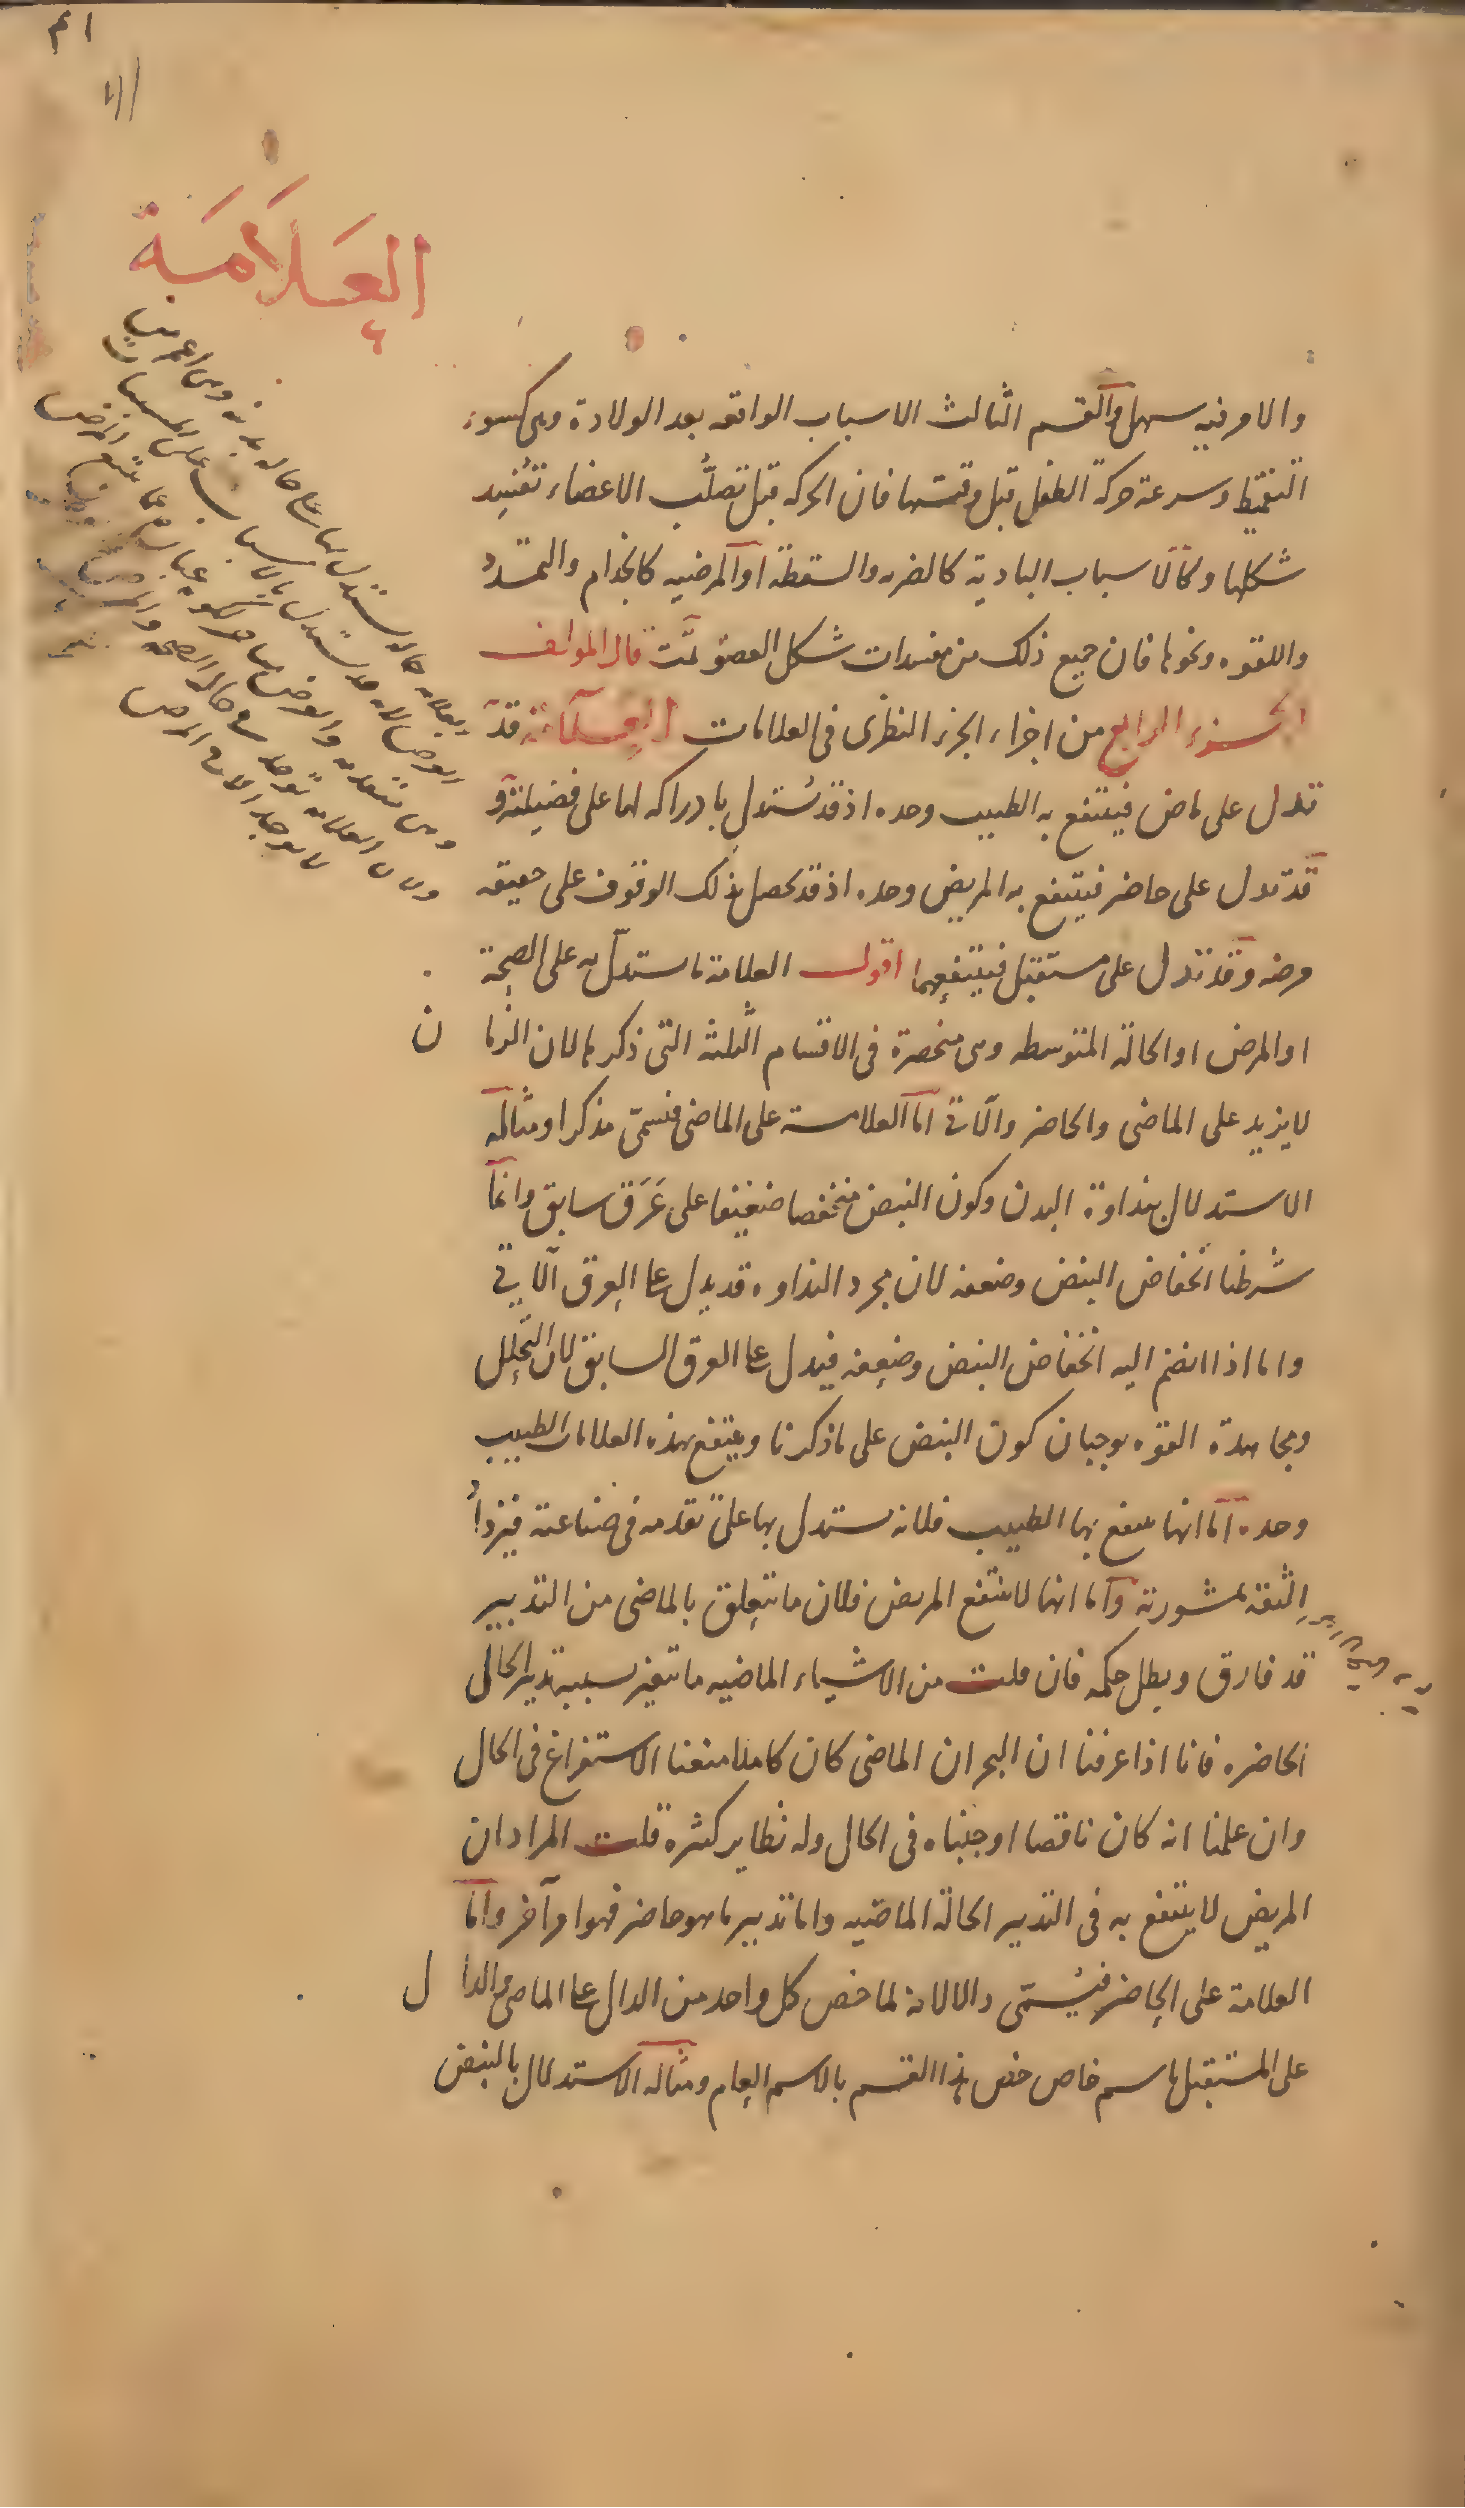 العَلَامَة
والامر فيه سهل والقسم الثالث الاسباب الواقعه بعد الولادة وهى كسوء
التقميط وسرعة حركة الطفل قبل وقتها فان الحركه قبل تصلُّب الاعضاء تفسد
شكلها وكالاسباب البادية كالضربه والسقطة او المرضيه كالجذام والتمدد
واللقوه ونحوها فان جميع ذلك من مفسدات شكل العضو تمَّت قال المولف
الجزء الرابع من اجزاء الجزء النظرى فى العلامات العلامة قد
تدل على ماض فينتفع به الطبيب وحده اذ قد يُستدل بادراكه لها على فضيلته و
قد تدل على حاضر فينتفع به المريض وحده اذ قد يحصل بذلك الوقوف على حقيقه
مرضه وقد تدل على مستقبل فينتفع بهما اقول العلامة ما يستدلّ به على الصحة
او المرض او الحالة المتوسطه وهى منحصرة فى الاقسام الثلثة التى ذكرها لان الزمان
لا يزيد على الماضى والحاضر والآتى اما العلامة على الماضى فتسمّى مذكرا ومثاله
الاستدلال بنداوة البدن وكون النبض منخفضا ضعيفا على عَرَق سابق وانما
شرطنا انخفاض النبض وضعفه لان مجرد النداوه قد يدل على العرق الآتى
واما اذا انضم اليه انخفاض النبض وضعفه فيدل على العرق السابق لان التحلل
ومجاهدة القوه يوجبان كون النبض على ما ذكرنا وينتفع بهذه العلامات الطبيب
وحده اما انها ينتفع بها الطبيب فلانه يستدل بها على تقدمه فى صناعته فيزداد
الثقة بمشورته واما انها لا ينتفع المريض فلان ما يتعلق بالماضى من التدبير
قد فارق وبطل حكمه فان قلت من الاشياء الماضيه ما يتغير بسببه تدبير الحال
الحاضره فانا اذا عرفنا ان البحران الماضى كان كاملا منعنا الاستفراغ فى الحال
وان علمنا انه كان ناقصا اوجبناه فى الحال وله نظاير كثيرة قلت المراد ان
المريض لا ينتفع به فى التدبير الحالة الماضيه واما تدبير ما هو حاضر فهو امر آخر واما
العلامة على الحاضر فيُسمّى دالا لانه لما خص كل واحد من الدال على الماضى والدال
على المستقبل باسم خاص خص هذا القسم بالاسم العام ومثاله الاستدلال بالنبض